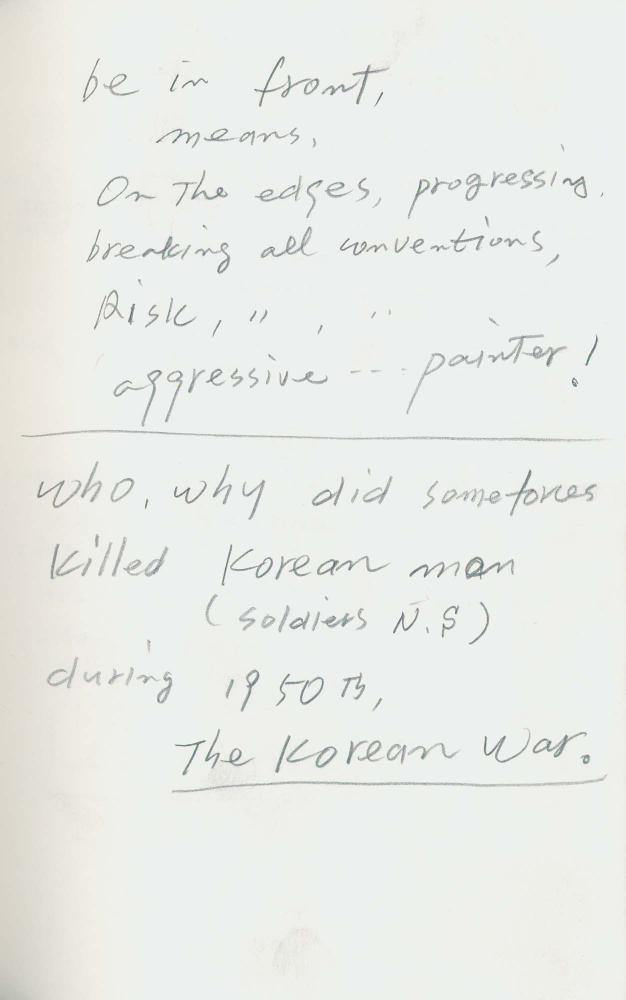 be in front,
means,
On The edges, progressing.
breaking all conventions,
Risk, " , "
aggressive --- painter!
who, why did some forces
killed Korean man
(soldiers N.S)
during 1950 Th,
The Korean War.